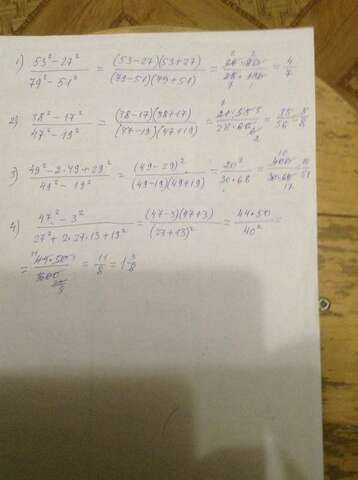 1) (53² - 27²)/(79² - 51²) = ((53-27)(53+27))/((79-51)(79+51)) = (26·80)/(28·130) = 4/7
2) (38² - 17²)/(47² - 19²) = ((38-17)(38+17))/((47-19)(47+19)) = (21·55)/(28·66) = 5/8
3) (49² - 2·49 + 29²)/(49² - 19²) = (49-29)²/((49-19)(49+19)) = 20²/(30·68) = 400/(30·68) = 10/51
4) (47² - 3²)/(27² + 2·27·13 + 13²) = ((47-3)(47+3))/(27+13)² = (44·50)/40² =
= (44·50)/1600 = 11/8 = 1 3/8